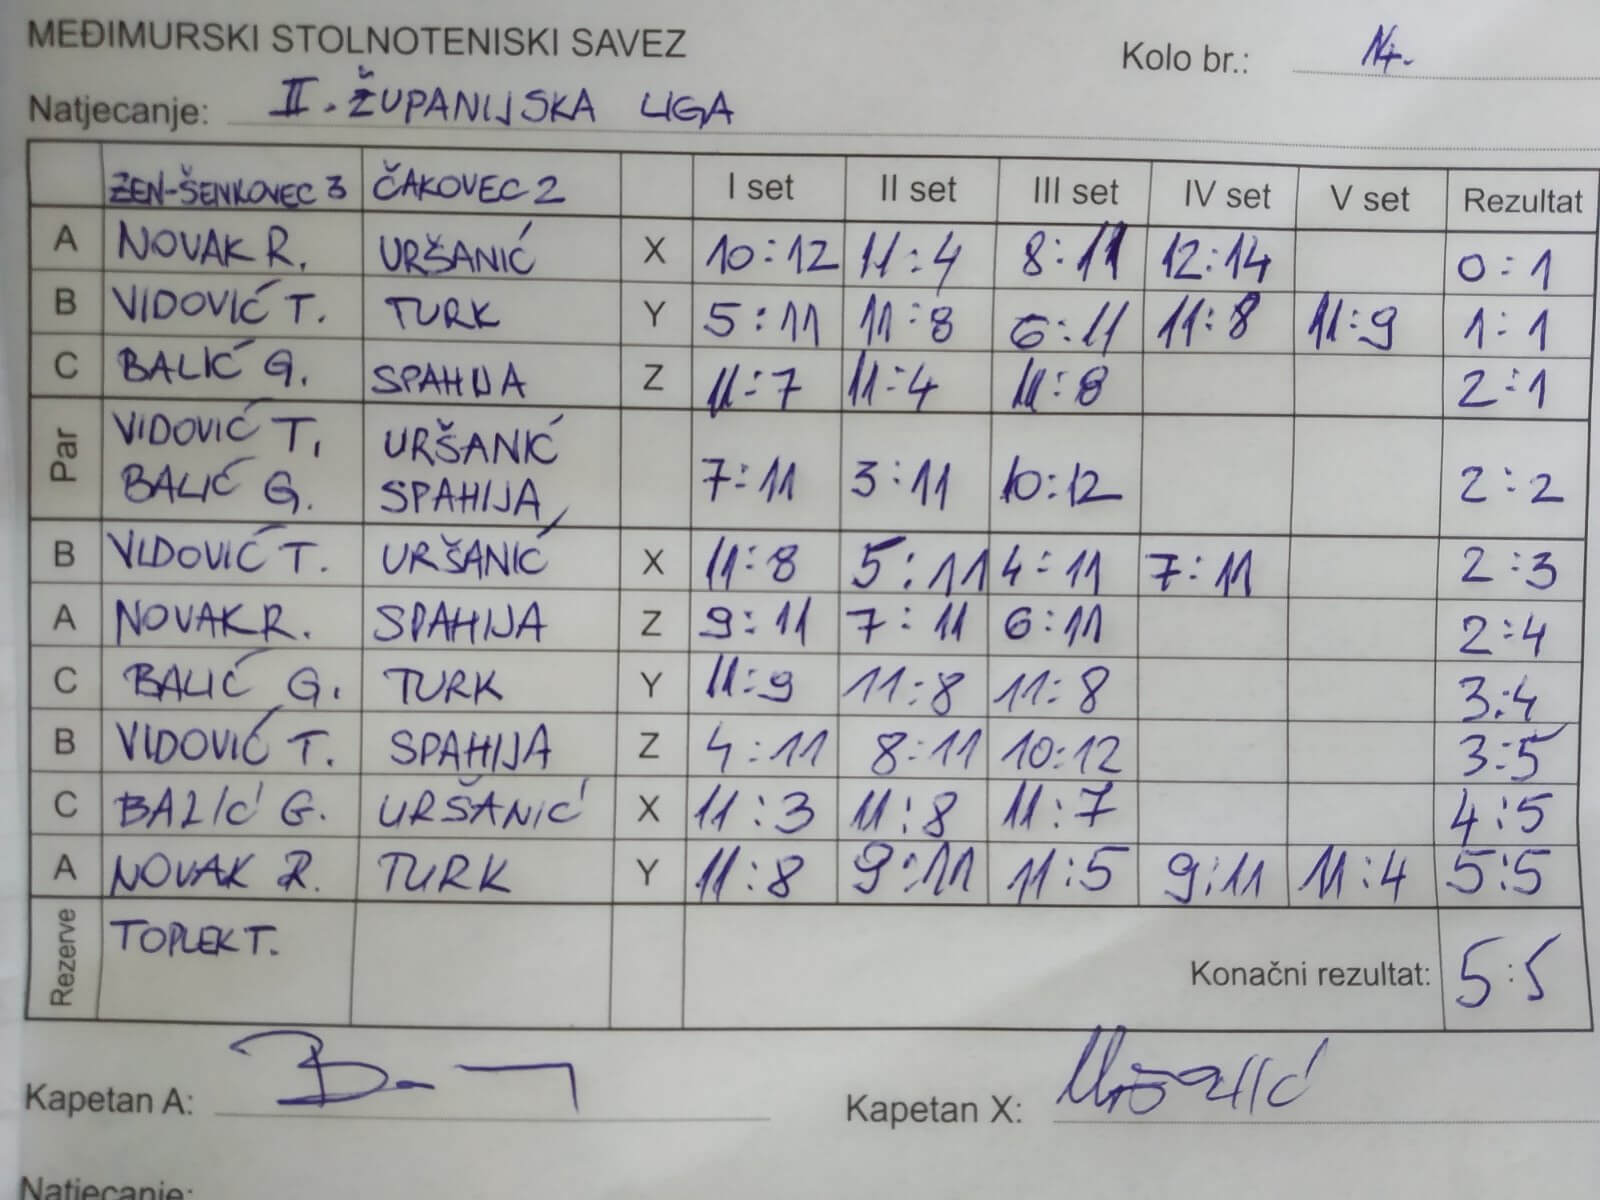 MEĐIMURSKI STOLNOTENISKI SAVEZ
Kolo br.: 14.
Natjecanje: II. ŽUPANIJSKA LIGA
ZEN-ŠENKOVEC 3 ČAKOVEC 2 I set II set III set IV set V set Rezultat
A NOVAK R. URŠANIĆ X 10:12 11:4 8:11 12:14 0:1
B VIDOVIĆ T. TURK Y 5:11 11:8 6:11 11:8 11:9 1:1
C BALIĆ G. SPAHIJA Z 11:7 11:4 11:8 2:1
Par VIDOVIĆ T, URŠANIĆ
BALIĆ G. SPAHIJA 7:11 3:11 10:12 2:2
B VIDOVIĆ T. URŠANIĆ X 11:8 5:11 4:11 7:11 2:3
A NOVAK R. SPAHIJA Z 9:11 7:11 6:11 2:4
C BALIĆ G. TURK Y 11:9 11:8 11:8 3:4
B VIDOVIĆ T. SPAHIJA Z 4:11 8:11 10:12 3:5
C BALIĆ G. URŠANIĆ X 11:3 11:8 11:7 4:5
A NOVAK R. TURK Y 11:8 9:11 11:5 9:11 11:4 5:5
Rezerve TOPLEK T.
Konačni rezultat: 5:5
Kapetan A:
Kapetan X: Uršanić
Natjecanje: